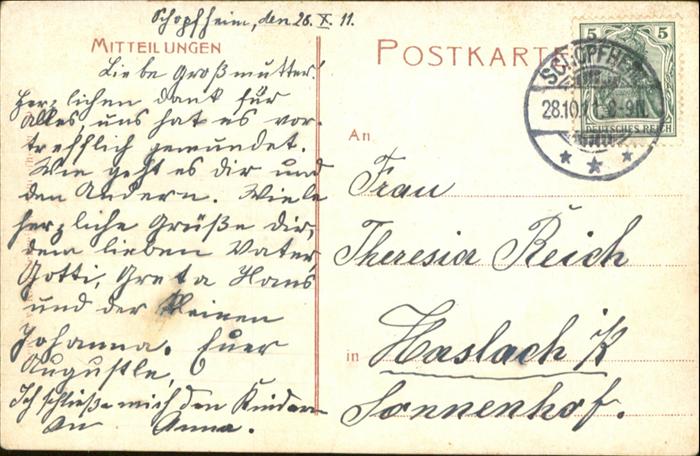 Schopfheim, den 28. X. 11.
MITTEILUNGEN
Liebe Großmutter!
Herzlichen dank für
Alles, uns hat es vor-
trefflich gemundet.
Wie geht es dir und
den Andern. Wiele
herzliche Grüße dir,
dem lieben Vater,
Gotti, Greta Hans
und der kleinen
Johanna. Euer
Augustle,
Ich schließe mich den Kindern
an Anna.
POSTKARTE
5 5
DEUTSCHES REICH
SCHOPFHEIM
28.10.11. 8-9N
An
Frau
Theresia Reich
in Haslach i/K
Sonnenhof.